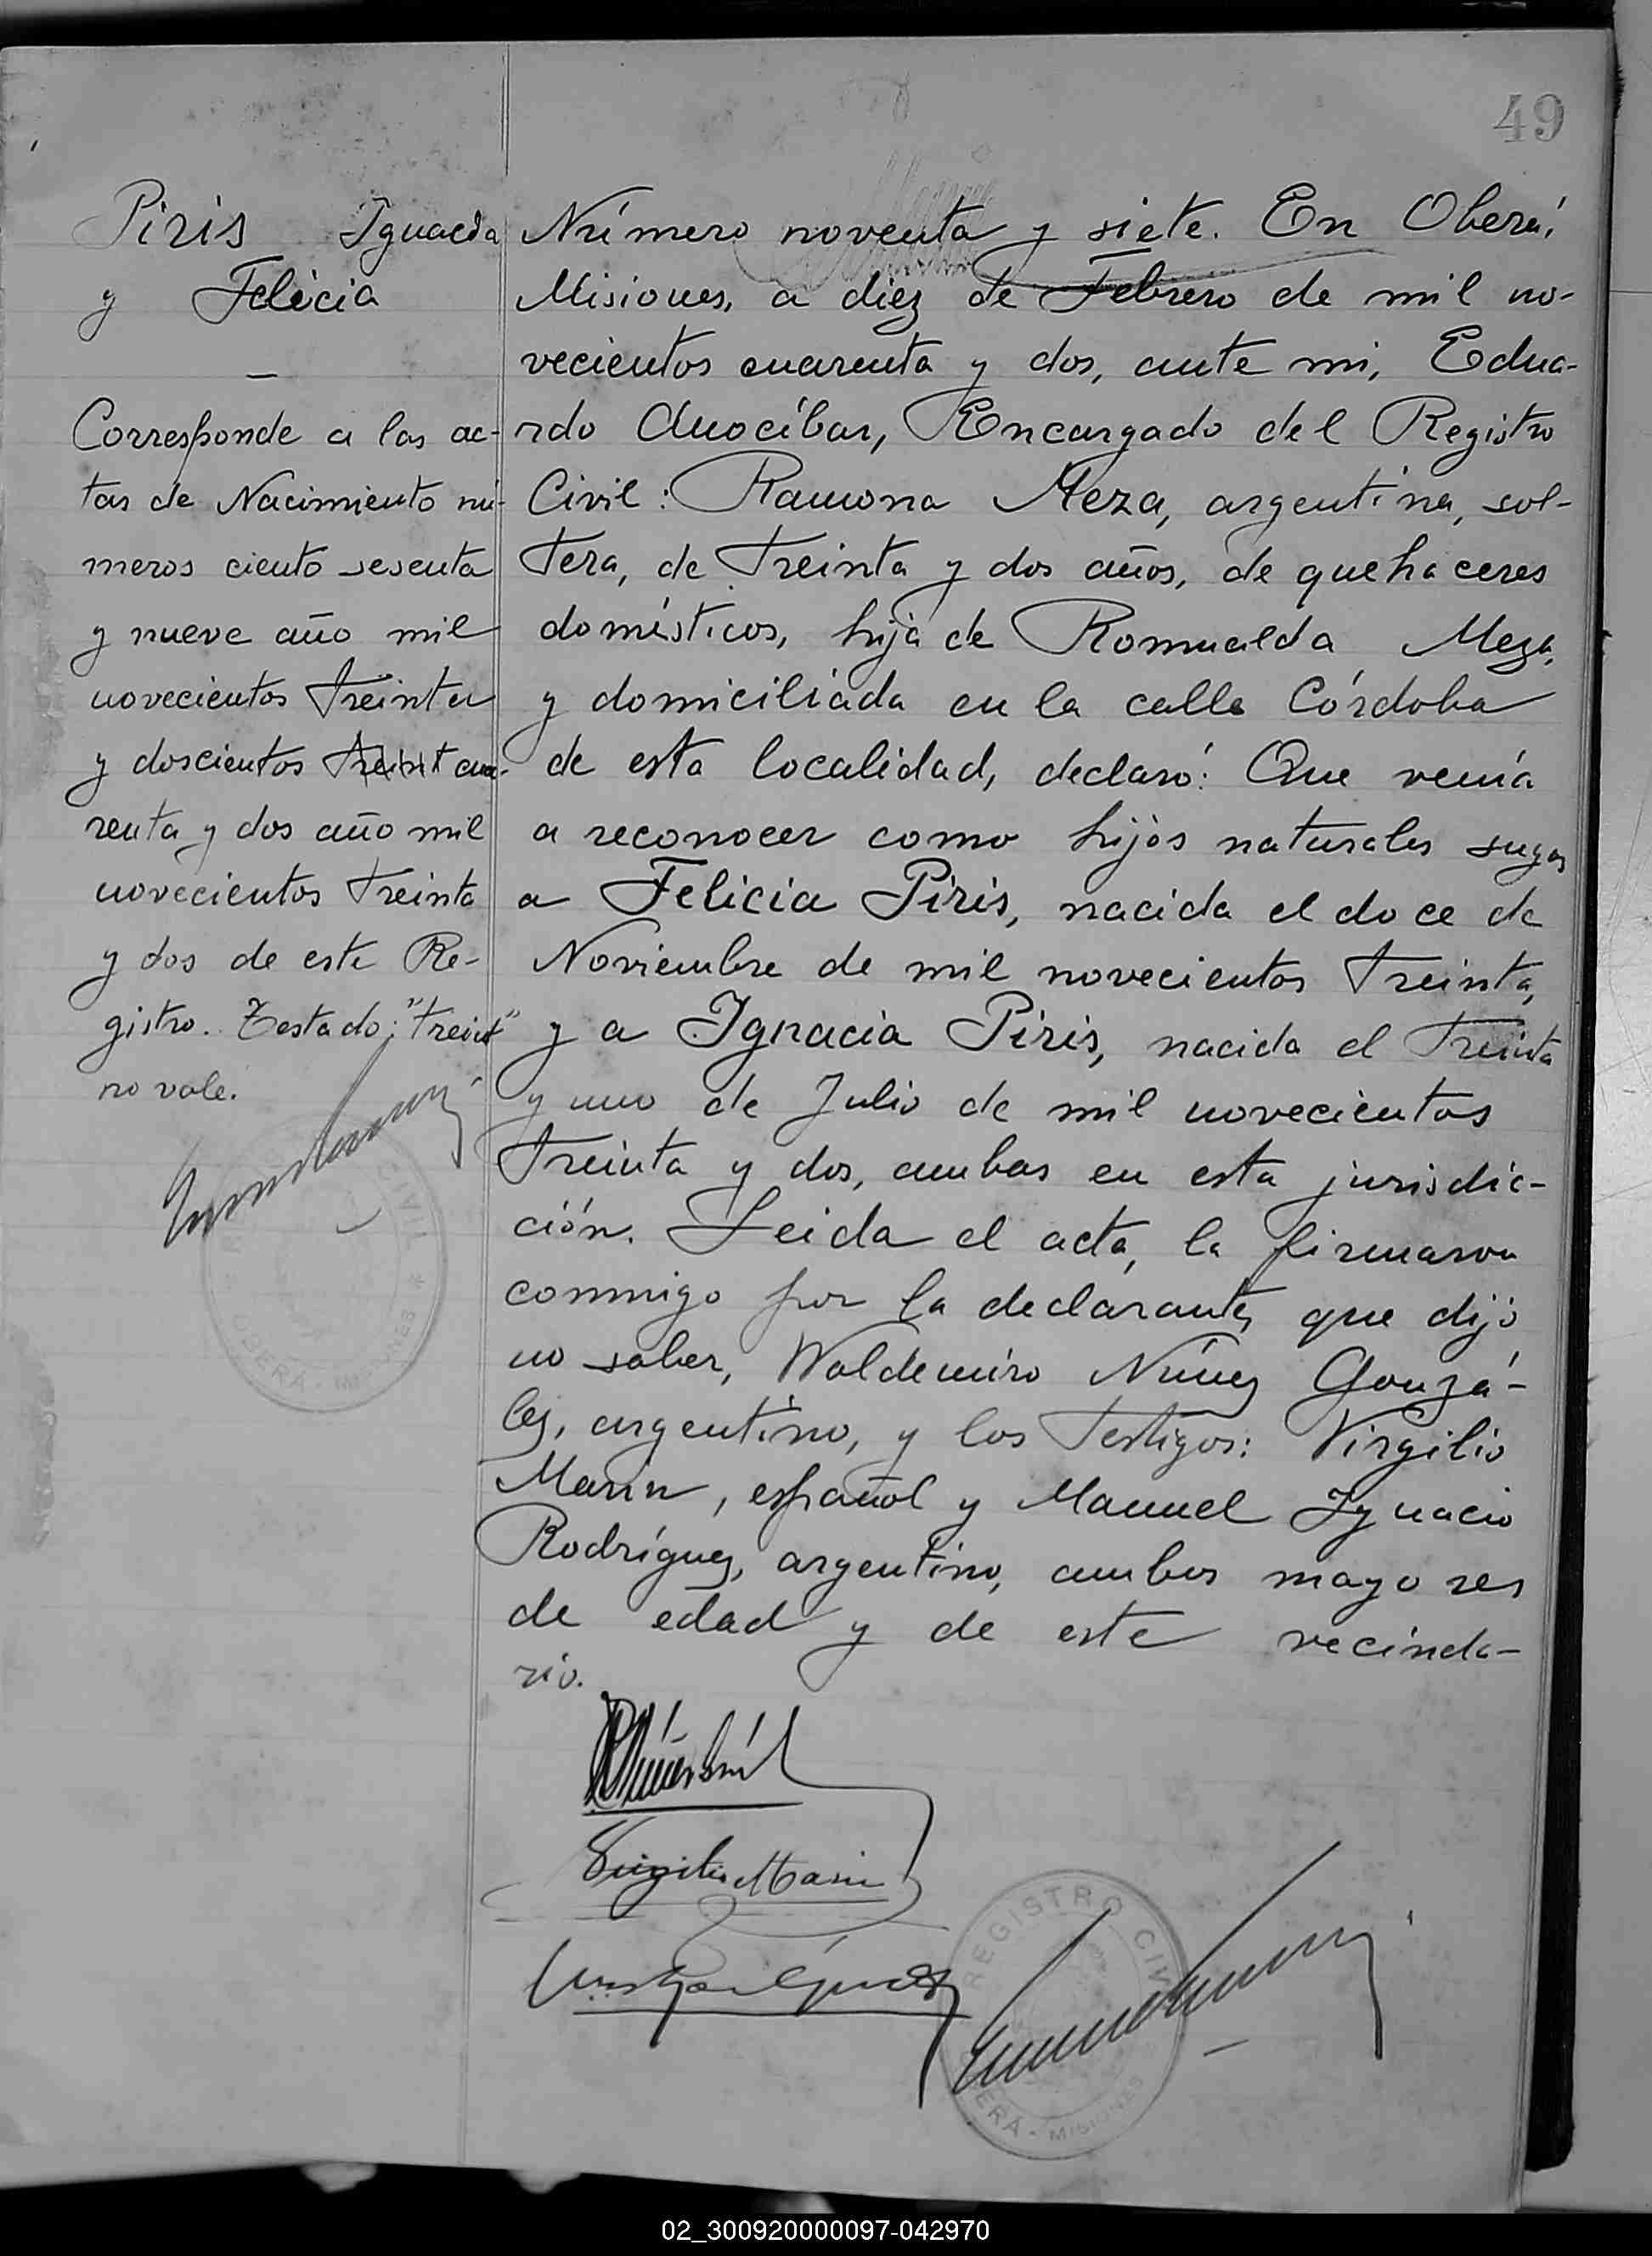 49
Piris Ignacia
y Felicia
Corresponde a las ac-
tas de Nacimiento nú-
meros ciento sesenta
y nueve año mil
novecientos treinta
y doscientos treint cua-
renta y dos año mil
novecientos treinta
y dos de este Re-
gistro. Testado: "treint"
no vale.
Número noventa y siete. En Oberá,
Misiones, a diez de Febrero de mil no-
vecientos cuarenta y dos, ante mi, Edua-
rdo Anocíbar, Encargado del Registro
Civil: Ramona Meza, argentina, sol-
tera, de treinta y dos años, de quehaceres
domésticos, hija de Romualda Meza,
y domiciliada en la calle Córdoba
de esta localidad, declaró: Que venía
a reconocer como hijos naturales suyos
a Felicia Piris, nacida el doce de
Noviembre de mil novecientos treinta,
y a Ignacia Piris, nacida el treinta
y uno de Julio de mil novecientos
treinta y dos, ambas en esta jurisdic-
ción. Leida el acta, la firmaron
conmigo por la declarante, que dijo
no saber, Waldemiro Núñez Gonzá-
lez, argentino, y los testigos: Virgilio
Marin, español y Manuel Ignacio
Rodríguez, argentino, ambos mayores
de edad y de este vecinda-
rio.
Virgilio Marin
REGISTRO CIVIL
OBERÁ - MISIONES
02_300920000097-042970